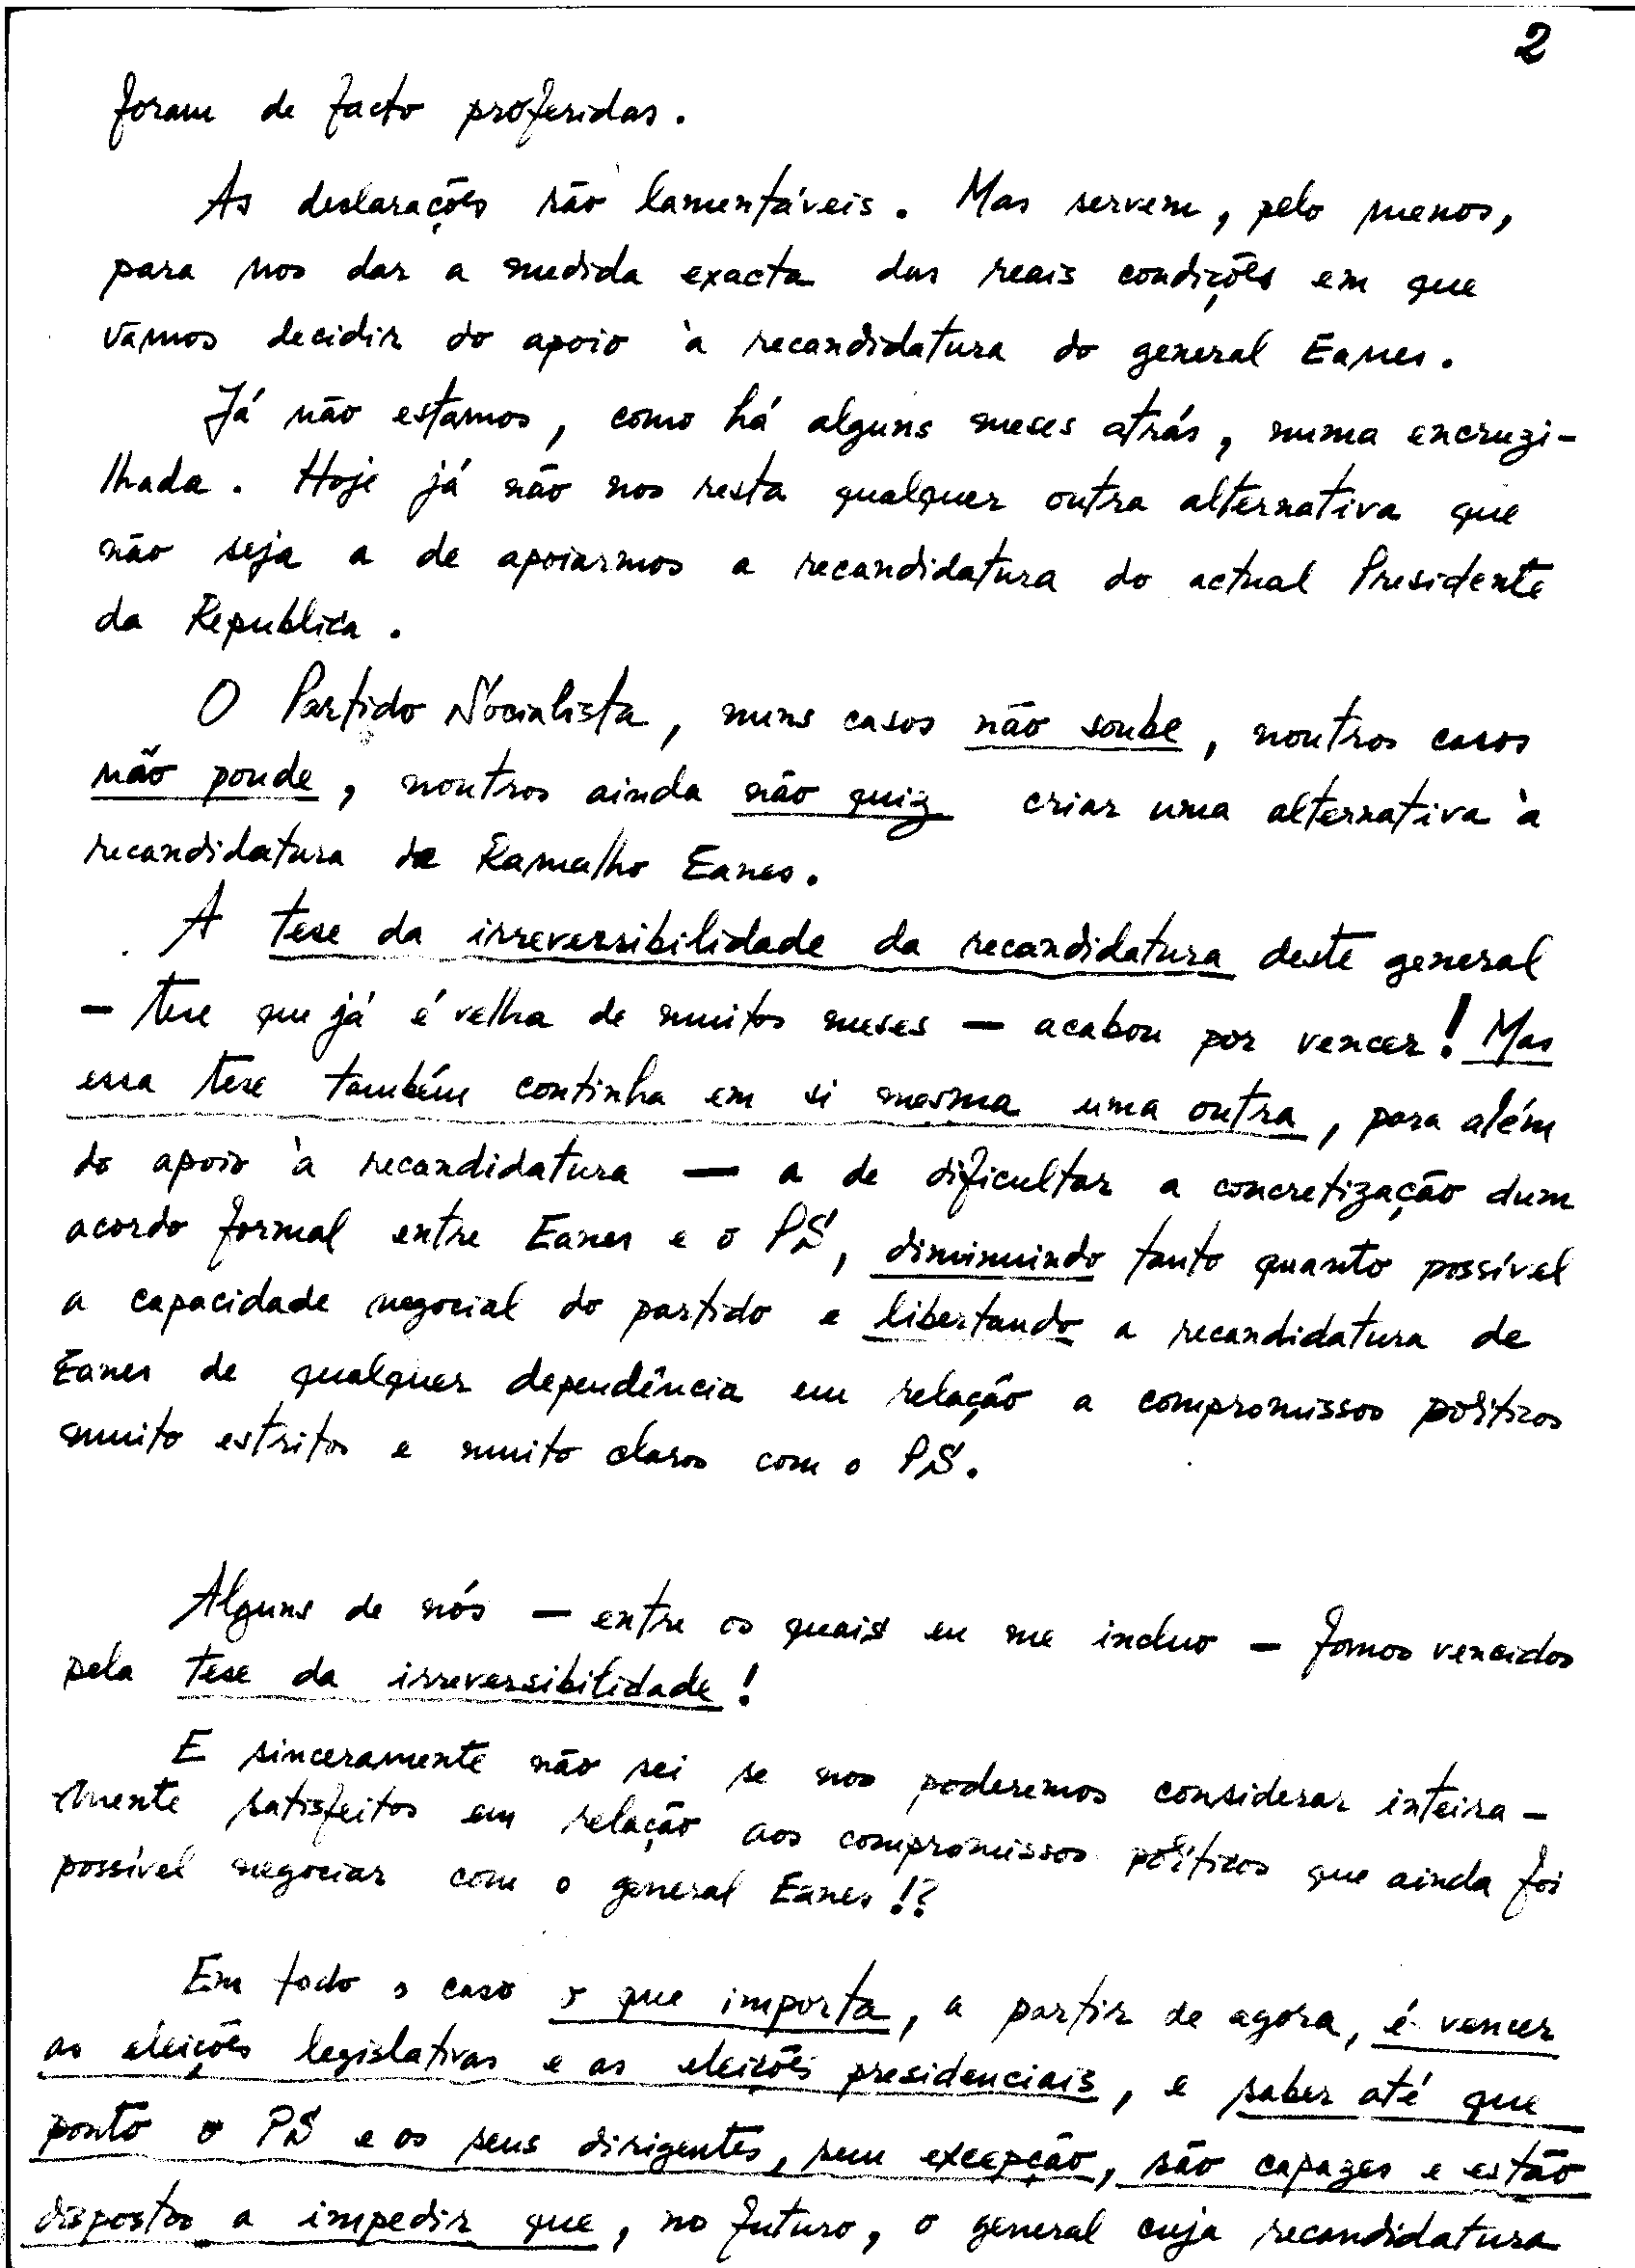 2
foram de facto proferidas.
As declarações são lamentáveis. Mas servem, pelo menos,
para nos dar a medida exacta das reais condições em que
vamos decidir do apoio à recandidatura do general Eanes.
Já não estamos, como há alguns meses atrás, numa encruzi-
lhada. Hoje já não nos resta qualquer outra alternativa que
não seja a de apoiarmos a recandidatura do actual Presidente
da Republica.
O Partido Socialista, nuns casos não soube, noutros casos
não poude, noutros ainda não quiz criar uma alternativa à
recandidatura de Ramalho Eanes.
A tese da irreversibilidade da recandidatura deste general
- tese que já é velha de muitos meses - acabou por vencer! Mas
essa tese também continha em si mesma uma outra, para além
do apoio à recandidatura - a de dificultar a concretização dum
acordo formal entre Eanes e o PS, diminuindo tanto quanto possível
a capacidade negocial do partido e libertando a recandidatura de
Eanes de qualquer dependência em relação a compromissos políticos
muito estritos e muito claros com o PS.
Alguns de nós - entre os quais eu me incluo - fomos vencidos
pela tese da irreversibilidade!
E sinceramente não sei se nos poderemos considerar inteira-
mente satisfeitos em relação aos compromissos políticos que ainda foi
possível negociar com o general Eanes!?
Em todo o caso o que importa, a partir de agora, é vencer
as eleições legislativas e as eleições presidenciais, e saber até que
ponto o PS e os seus dirigentes, sem excepção, são capazes e estão
dispostos a impedir que, no futuro, o general cuja recandidatura